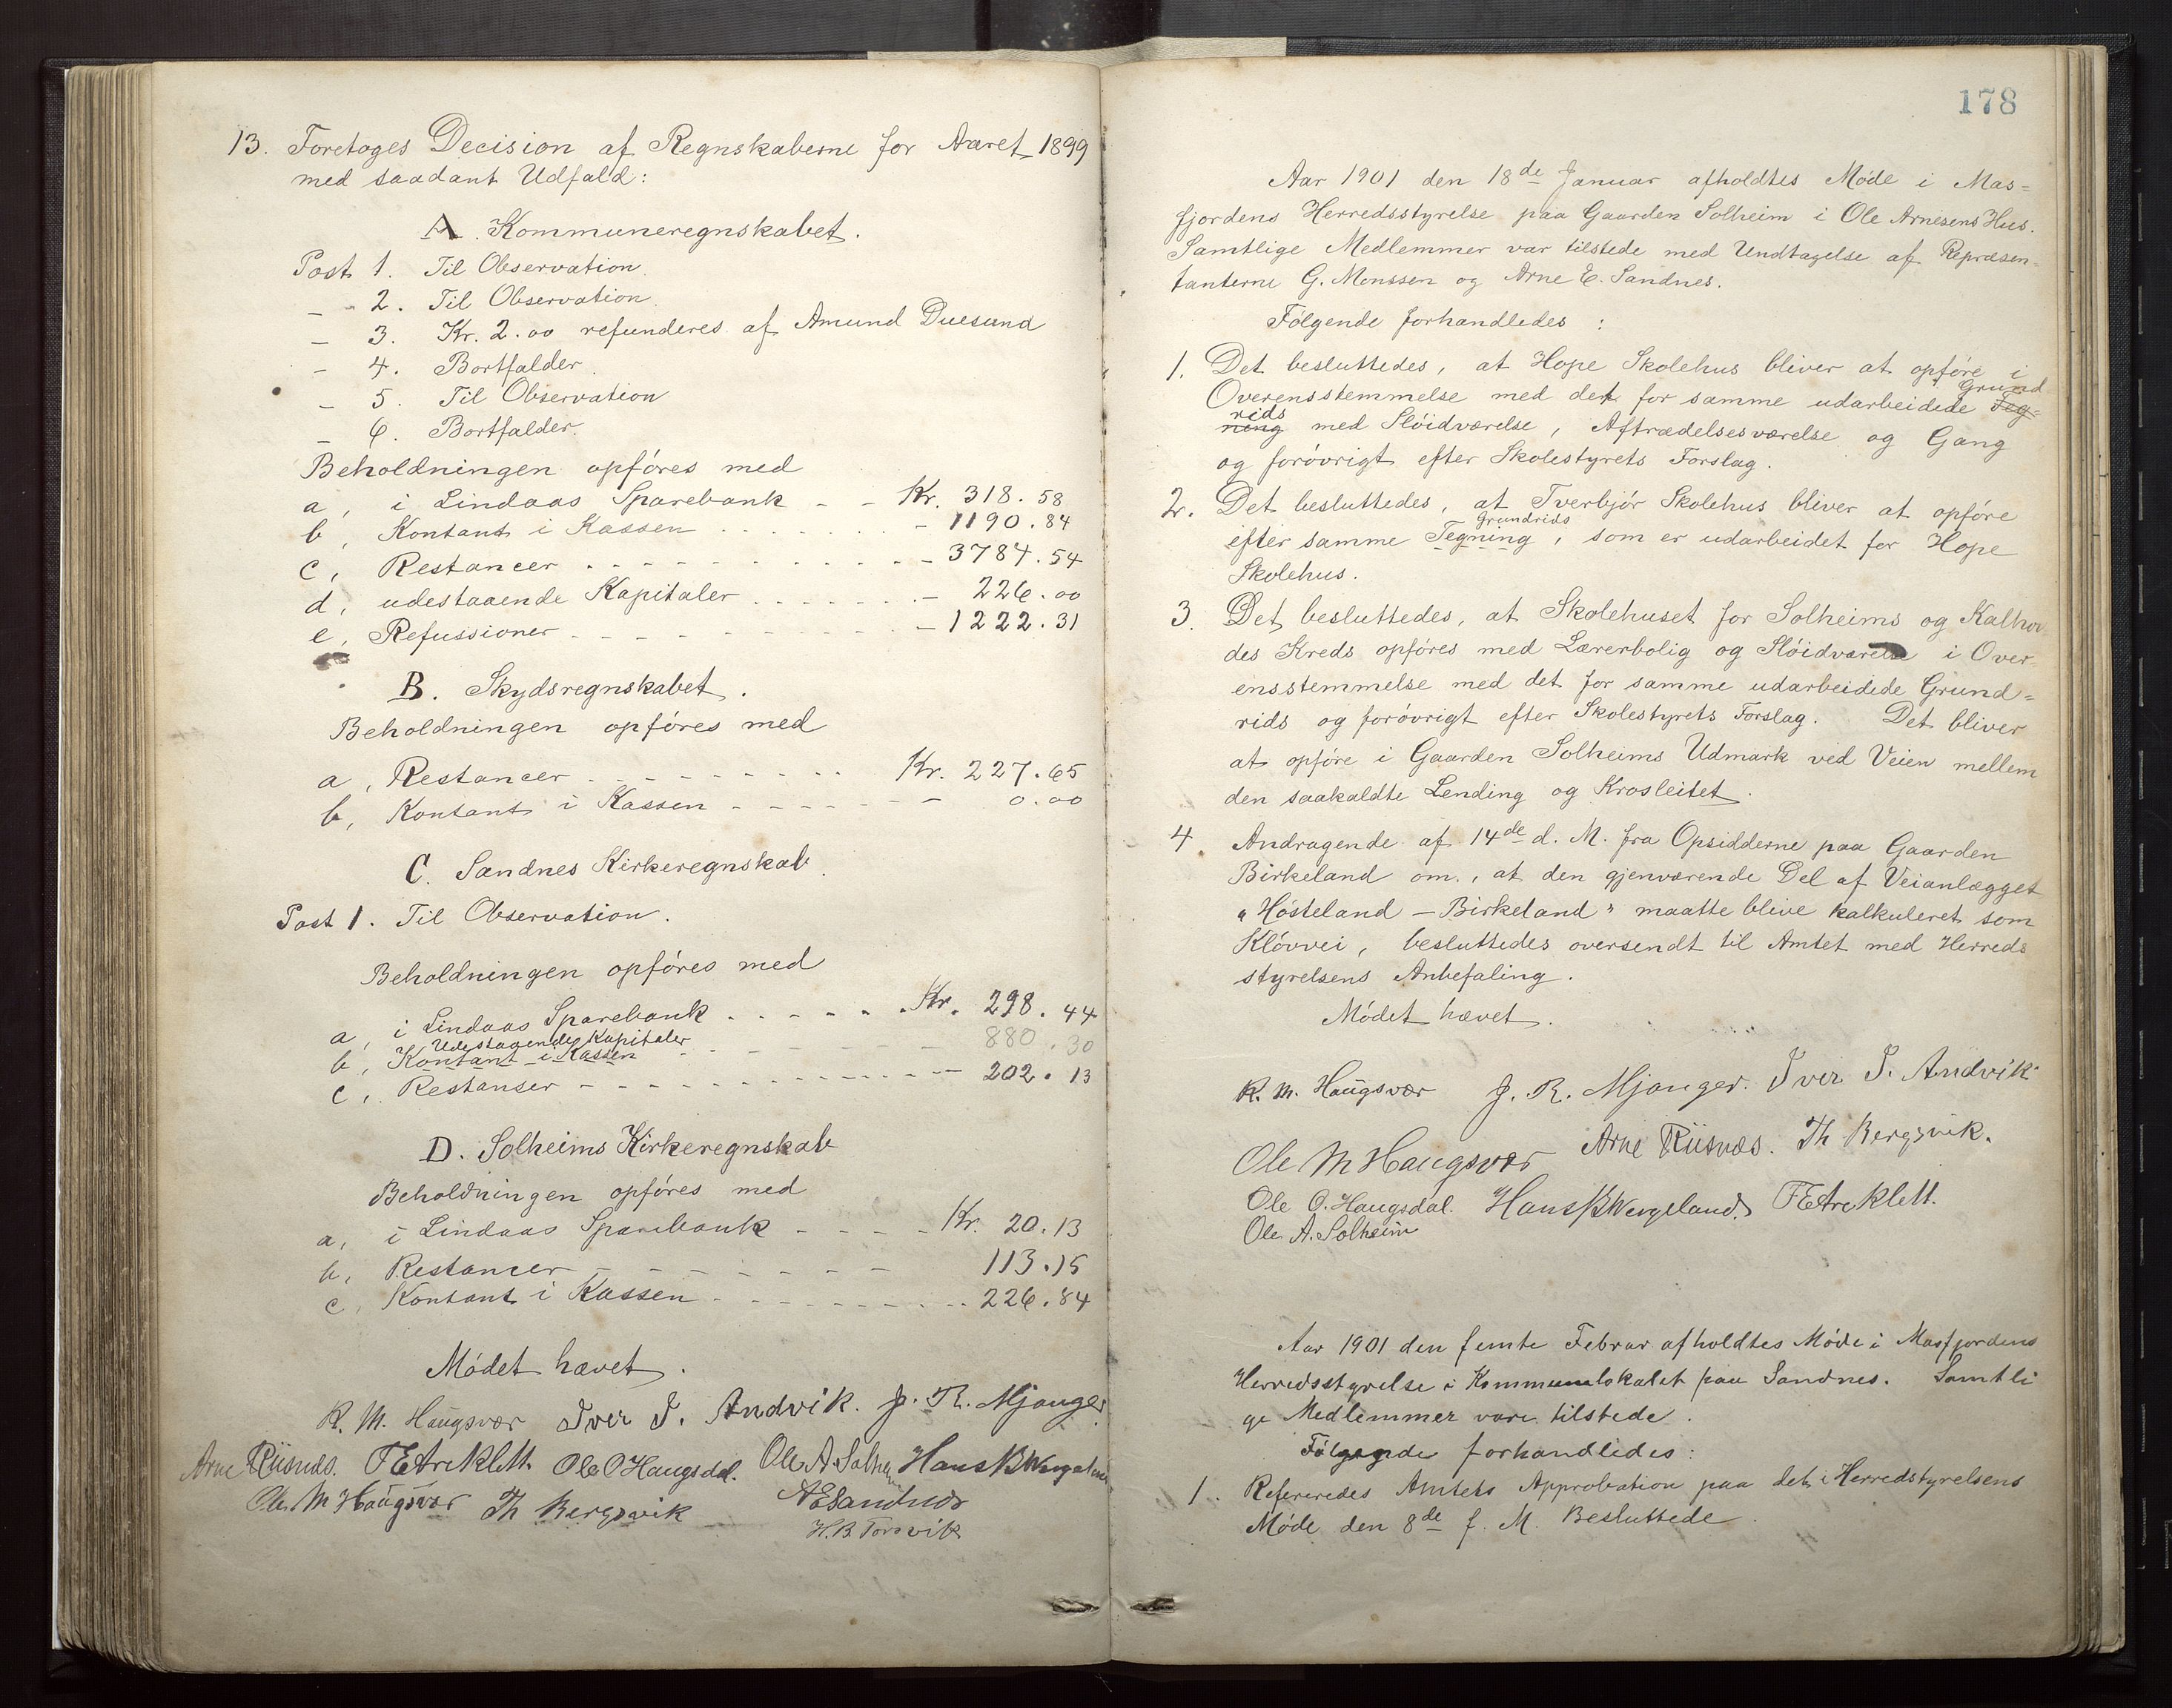 13. Foretoges Decision af Regnskaberne for Aaret 1899
med saadant Udfald:
A. Kommuneregnskabet.
Post 1. Til Observation.
- 2. Til Observation.
- 3. Kr. 2.00 refunderes af Amund Duesund
- 4. Bortfalder.
- 5. Til Observation
- 6. Bortfalder.
Beholdningen opføres med
a, i Lindaas Sparebank - - Kr. 318.58
b, Kontant i Kassen - 1190.84
c, Restancer - 3784.54
d, udestaaende Kapitaler - 226.00
e, Refussioner - 1222.31
B. Skydsregnskabet.
Beholdningen opføres med
a, Restancer Kr. 227.65
b, Kontant i Kassen - 0.00
C. Sandnes Kirkeregnskab.
Post 1. Til Observation.
Beholdningen opføres med
a, i Lindaas Sparebank Kr. 298.44
Udestaaende Kapitaler
b, Kontant i Kassen - 880.30
c, Restanser - 202.13
D. Solheims Kirkeregnskab
Beholdningen opføres med
a, i Lindaas Sparebank Kr. 20.13
b, Restancer 113.15
c, Kontant i Kassen 226.84
Mødet hævet.
R. M. Haugsvær Iver I. Andvik. J. R. Mjanger
Arne Riisnæs. T E Areklett Ole O Haugsdal. Ole A. Solheim Hans B Wergeland
Ole M Haugsvær Th Bergsvik A E Sandnes
H. B. Torsvik
178
Aar 1901 den 18de Januar afholdtes Møde i Mas=
fjordens Herredsstyrelse paa Gaarden Solheim i Ole Arnesens Hus.
Samtlige Medlemmer var tilstede med Undtagelse af Repræsen=
tanterne G. Monssen og Arne E. Sandnes.
Følgende forhandledes :
1. Det besluttedes, at Hope Skolehus bliver at opføre i
Grund
Overensstemmelse med det for samme udarbeidede Teg=
rids
ning med Sløidværelse, Aftrædelsesværelse og Gang
og forøvrigt efter Skolestyrets Forslag.
2. Det besluttedes, at Tverbjør Skolehus bliver at opføre
Grundrids
efter samme Tegning, som er udarbeidet for Hope
Skolehus.
3. Det besluttedes, at Skolehuset for Solheims og
des Kreds opføres med Lærerbolig og Sløidværelse i Over=
ensstemmelse med det for samme udarbeidede Grund=
rids og forøvrigt efter Skolestyrets Forslag. Det bliver
at opføre i Gaarden Solheims Udmark ved Veien mellem
den saakaldte Lending og Krosleitet.
4. Andragende af 14de d. M. fra Opsidderne paa Gaarden
Birkeland om, at den gjenværende Del af Veianlægget
"Høsteland - Birkeland" maatte blive kalkuleret som
Kløvvei, besluttedes oversendt til Amtet med Herreds
styrelsens Anbefaling.
Mødet hævet.
R. M. Haugsvær J. R. Mjanger. Iver I. Andvik
Ole M Haugsvær Arne Riisnæs. Th Bergsvik.
Ole O. Haugsdal. Hans B Wergeland. T E Areklett.
Ole A. Solheim
Aar 1901 den femte Februar afholdtes Møde i Masfjordens
Herredsstyrelse i Kommunelokalet paa Sandnes. Samtli
ge Medlemmer vare tilstede.
Følgende forhandledes:
1. Refereredes Amtets Approbation paa det i Herredstyrelsens
Møde den 8de f. M. Besluttede.